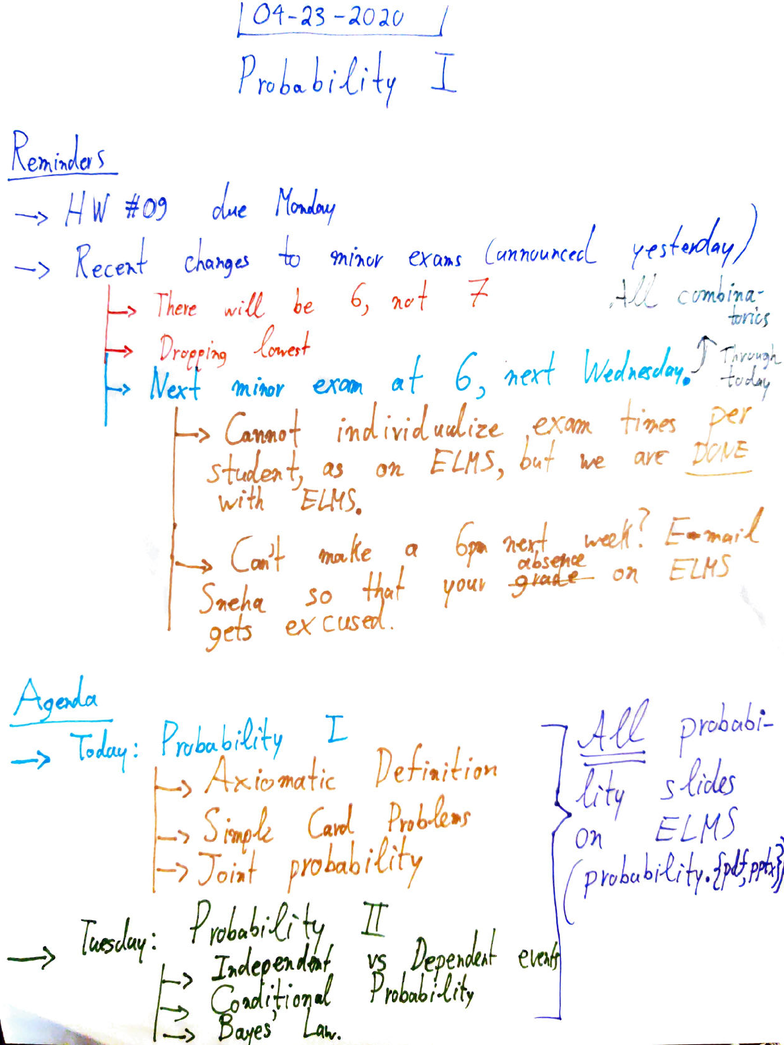 04-23-2020
Probability I
Reminders
→ HW #09 due Monday
→ Recent changes to minor exams (announced yesterday)
→ There will be 6, not 7
→ Dropping lowest
→ Next minor exam at 6, next Wednesday.
All combina-
torics
↑ Through
today
→ Cannot individualize exam times per
student, as on ELMS, but we are DONE
with ELMS.
→ Can't make a 6pm next week? E-mail
Sneha so that your grade absence on ELMS
gets excused.
Agenda
→ Today: Probability I
→ Axiomatic Definition
→ Simple Card Problems
→ Joint probability
→ Tuesday: Probability II
→ Independent vs Dependent events
→ Conditional Probability
→ Bayes' Law.
All probabi-
lity slides
on ELMS
(probability.{pdf,pptx})